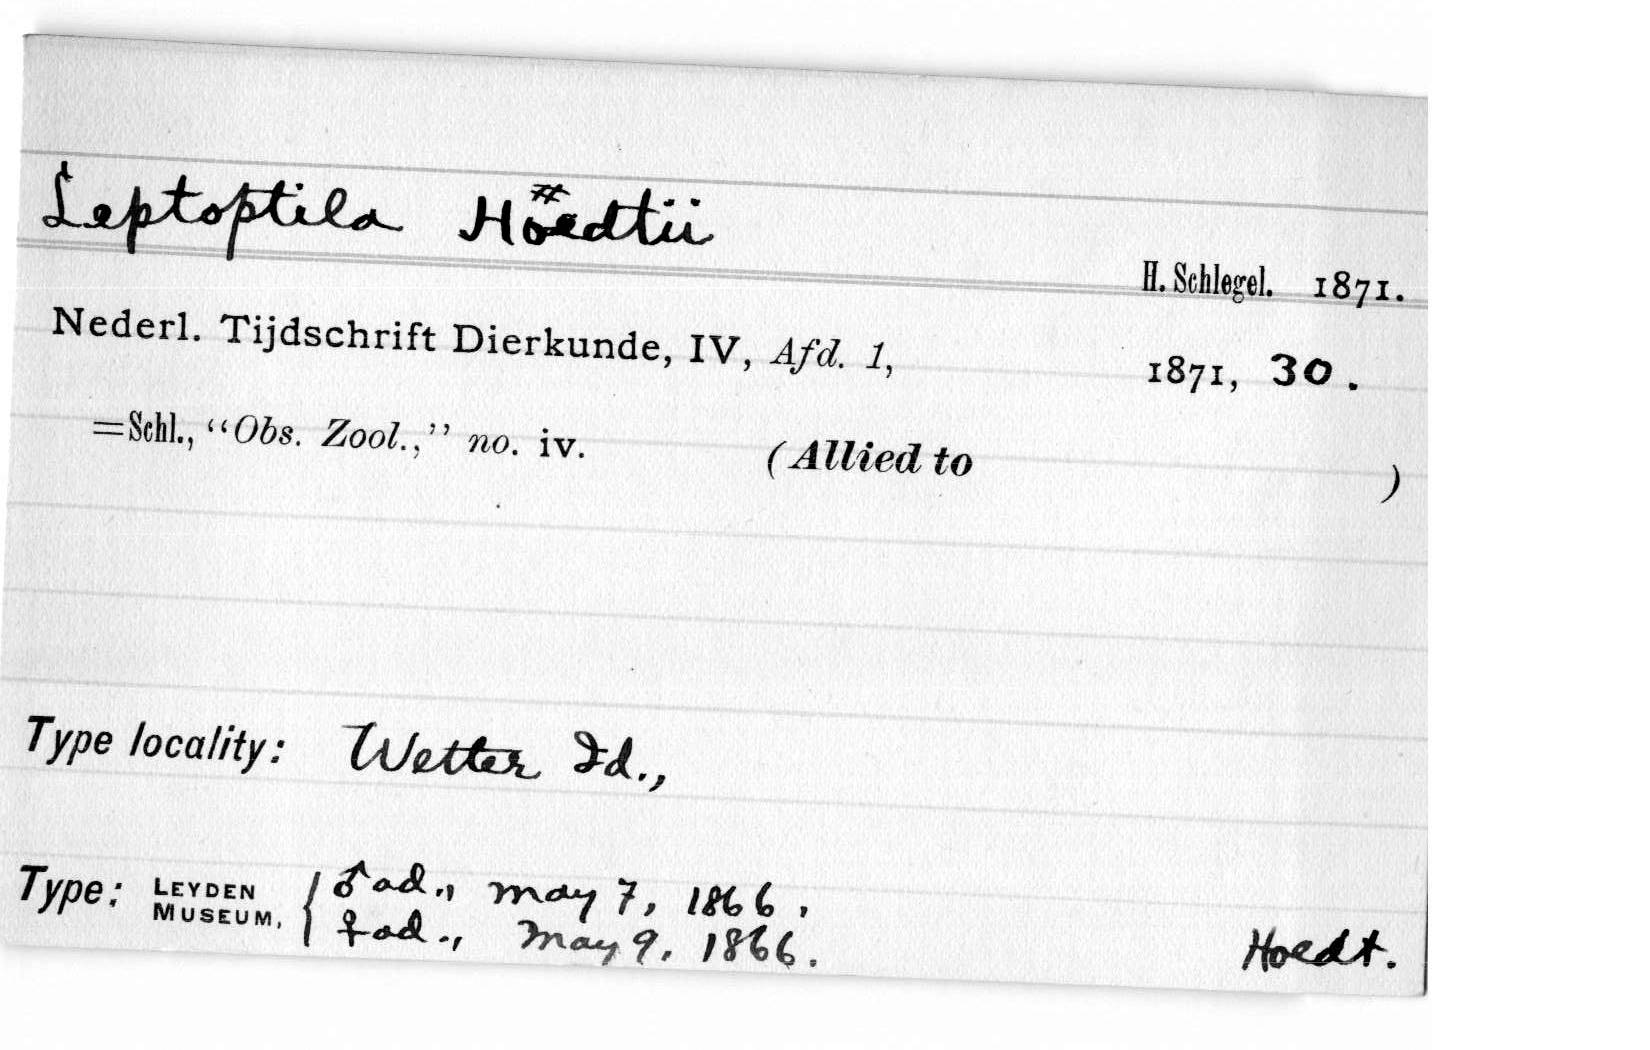 Leptoptila Hoedtii
H. Schlegel. 1871.
Nederl. Tijdschrift Dierkunde, IV, Afd. 1, 1871, 30.
=Schl., “Obs. Zool.,” no. iv. (Allied to )
Type locality: Wetter Id.,
Type: LEYDEN MUSEUM, { ♂ ad., May 7, 1866,
♀ ad., May 9, 1866. Hoedt.